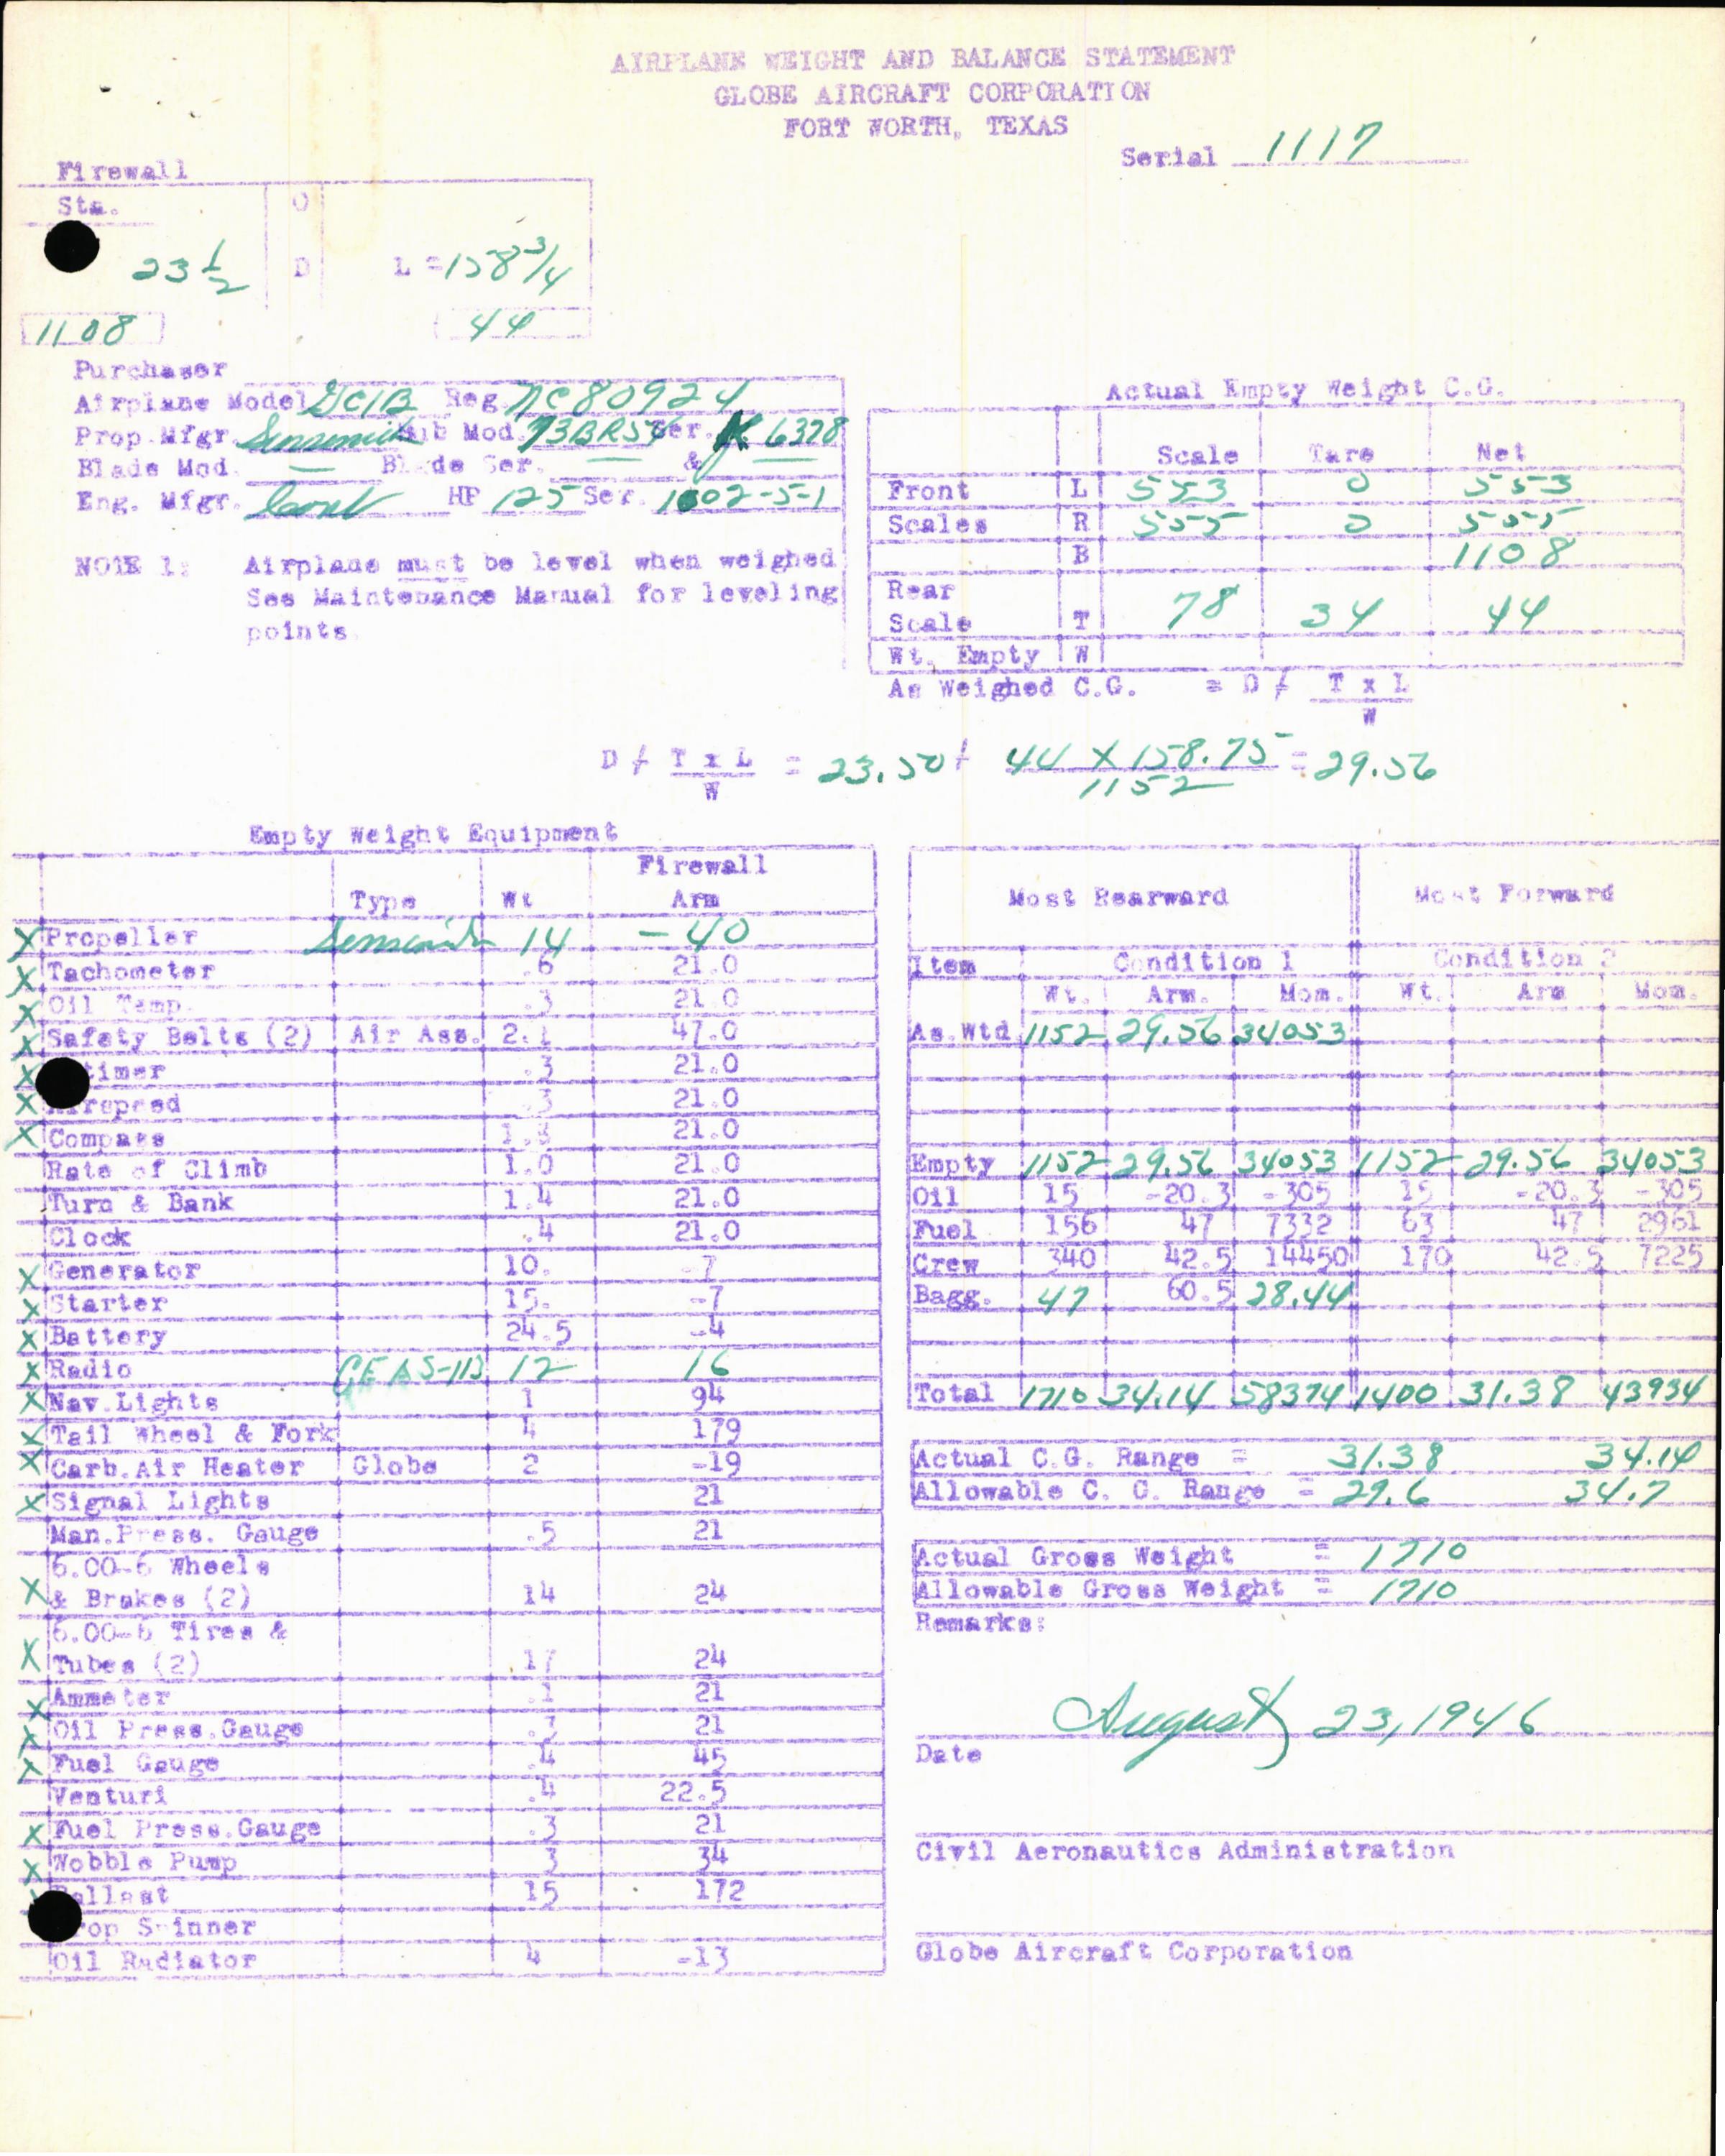 AIRPLANE WEIGHT AND BALANCE STATEMENT
GLOBE AIRCRAFT CORPORATION
FORT WORTH, TEXAS
Serial 1117
Firewall
Sta. O
23 1/2 D L = 158 3/4
1108 44
Purchaser
Airplane Model GC1B Reg. NC80924
Prop.Mfgr. Sensenich Hub Mod. 73BR5 Ser. 6378
Blade Mod. — Blade Ser. — & —
Eng. Mfgr. Cont HP 125 Ser. 1002-5-1
NOTE 1: Airplane must be level when weighed
See Maintenance Manual for leveling
points.
Actual Empty Weight C.G.
Scale Tare Net
Front L 553 0 553
Scales R 555 0 555
B 1108
Rear
Scale T 78 34 44
Wt. Empty W
As Weighed C.G. = D / T x L
W
D / T x L = 23.50 / 44 X 158.75 = 29.56
W 1152
Empty Weight Equipment
Type Wt Firewall Arm
X Propeller Sensenich 14 -40
X Tachometer .6 21.0
X Oil Temp. .3 21.0
X Safety Belts (2) Air Ass. 2.1 47.0
X timer .3 21.0
X Airspeed .3 21.0
X Compass 21.0
Rate of Climb 1.0 21.0
Turn & Bank 1.4 21.0
Clock .4 21.0
X Generator 10. -7
X Starter 15. -7
X Battery 24.5 -4
X Radio GE AS-11B 12 16
X Nav.Lights 1 94
X Tail Wheel & Fork 4 179
X Carb.Air Heater Globe 2 -19
X Signal Lights 21
Man.Press. Gauge .5 21
6.00-6 Wheels
X & Brakes (2) 14 24
6.00-6 Tires &
X Tubes (2) 17 24
X Ammeter .1 21
X Oil Press.Gauge 21
X Fuel Gauge .4 45
Venturi .4 22.5
X Fuel Press.Gauge .3 21
X Wobble Pump 3 34
Ballast 15 172
Prop Spinner
Oil Radiator 4 -13
Most Rearward Most Forward
Item Condition 1 Condition 2
Wt. Arm. Mom. Wt. Arm Mom.
As.Wtd 1152 29.56 34053
Empty 1152 29.56 34053 1152 29.56 34053
Oil 15 -20.3 -305 15 -20.3 -305
Fuel 156 47 7332 63 47 2961
Crew 340 42.5 14450 170 42.5 7225
Bagg. 47 60.5 28.44
Total 1710 34.14 58374 1400 31.38 43934
Actual C.G. Range = 31.38 34.14
Allowable C. G. Range = 29.6 34.7
Actual Gross Weight = 1710
Allowable Gross Weight = 1710
Remarks:
August 23, 1946
Date
Civil Aeronautics Administration
Globe Aircraft Corporation